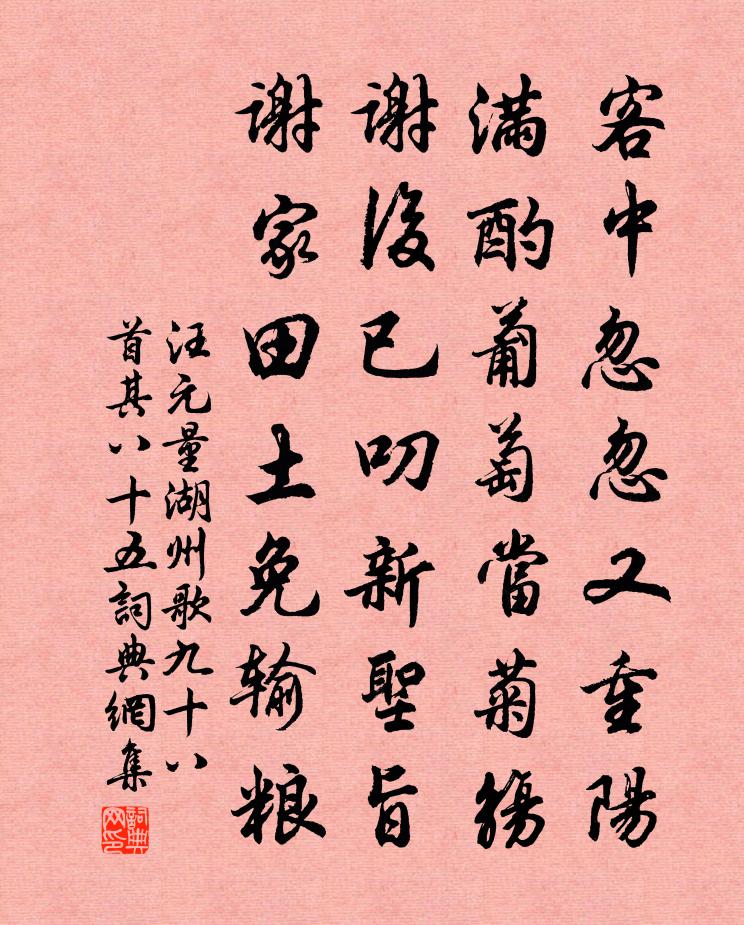 客中忽忽又重陽
滿酌葡萄當菊觴
謝後已叨新聖旨
謝家田土免输粮
汪元量湖州歌九十八
首其八十五詞典網集
詞典网印